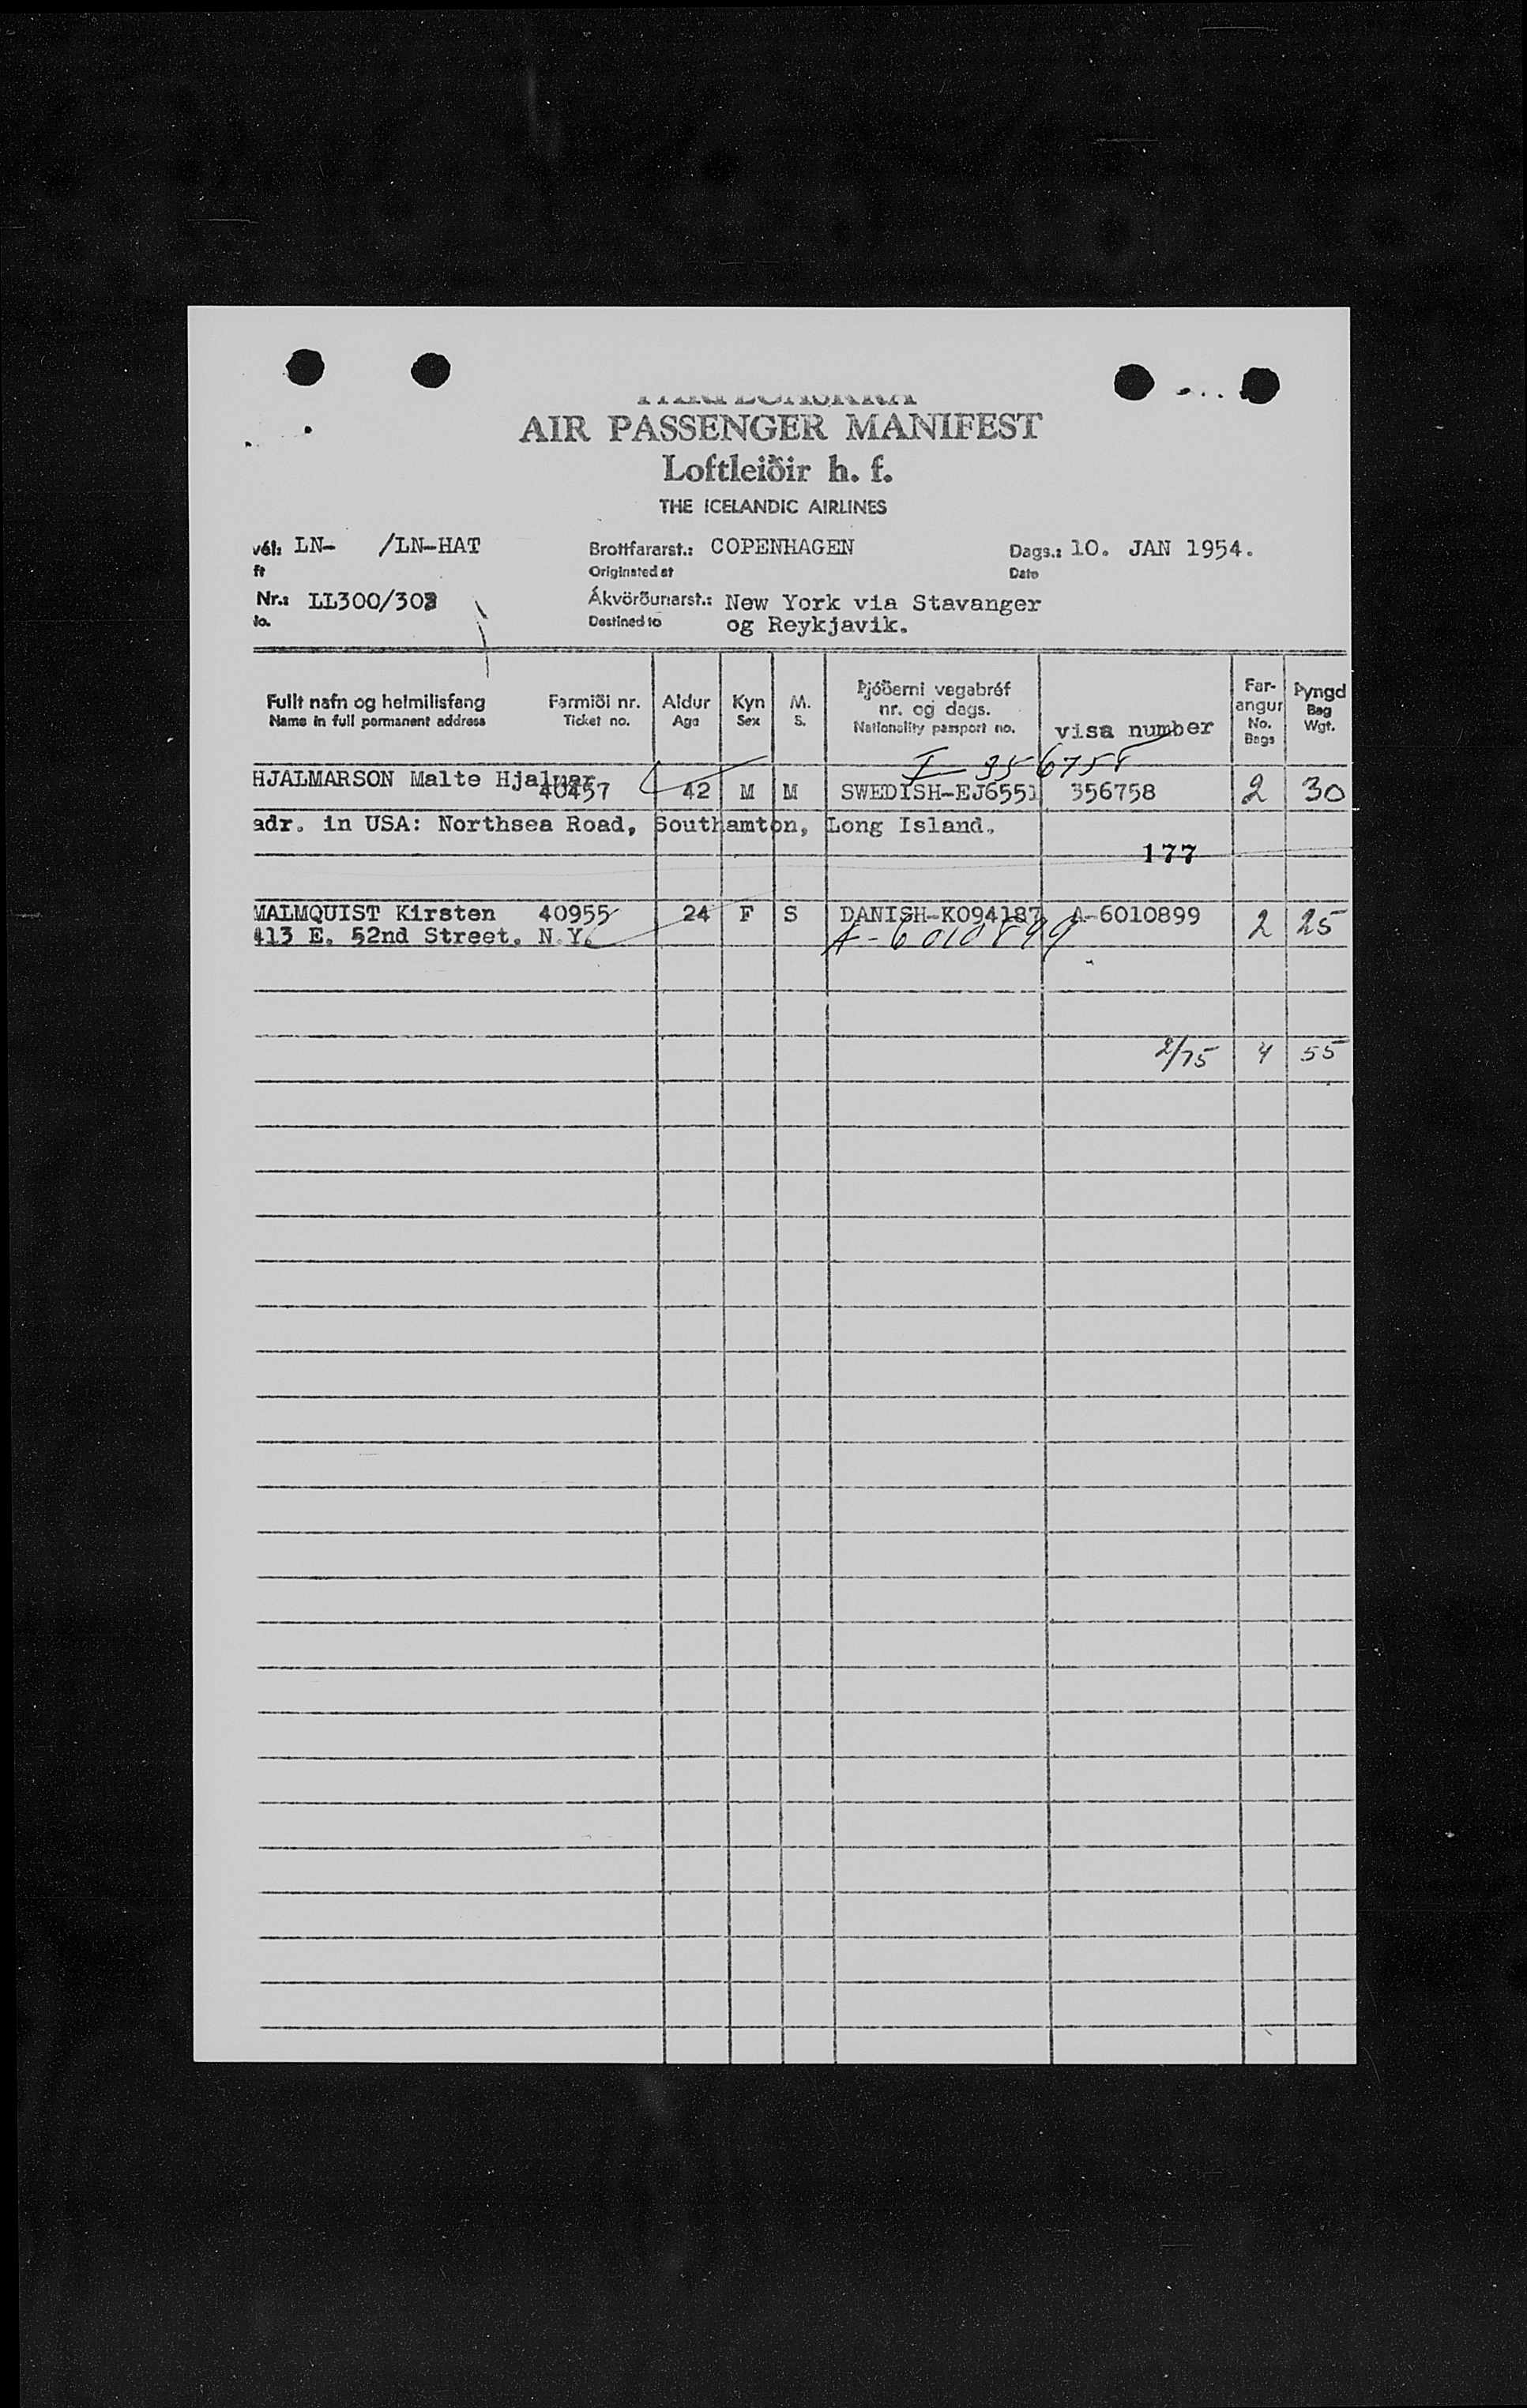 AIR PASSENGER MANIFEST
Loftleiðir h. f.
THE ICELANDIC AIRLINES
vél: LN- /LN-HAT Brottfararst.: COPENHAGEN Dags.: 10. JAN 1954.
ft Originated at Date
Nr.: LL300/302 Ákvörðunarst.: New York via Stavanger
No. Destined to og Reykjavik.
Fullt nafn og heimilisfang Farmiði nr. Aldur Kyn M. Þjóðerni vegabréf nr. og dags. Far-angur Þyngd
Name in full permanent address Ticket no. Age Sex S. Nationality passport no. visa number No. Bags Bag Wgt.
I-356758
HJALMARSON Malte Hjalmar
40457 42 M M SWEDISH-EJ6551 356758 2 30
adr. in USA: Northsea Road, Southamton, Long Island.
177
MALMQUIST Kirsten 40955 24 F S DANISH-K094187 A-6010899 2 25
413 E. 52nd Street. N.Y. A-6010899
2/75 4 55